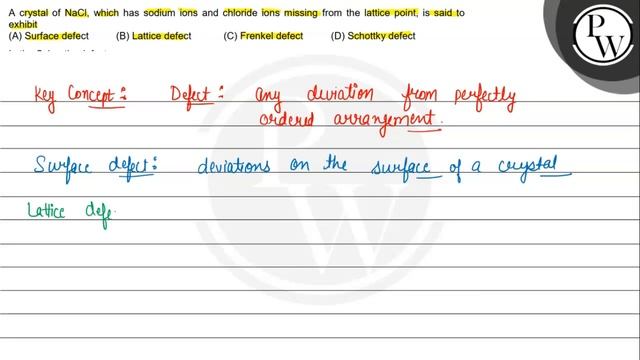 A crystal of NaCl, which has sodium ions and chloride ions missing from the lattice point, is said to
exhibit
(A) Surface defect (B) Lattice defect (C) Frenkel defect (D) Schottky defect
P
W
Key Concept: Defect: any deviation from perfectly
ordered arrangement.
Surface defect: deviations on the surface of a crystal
Lattice defe